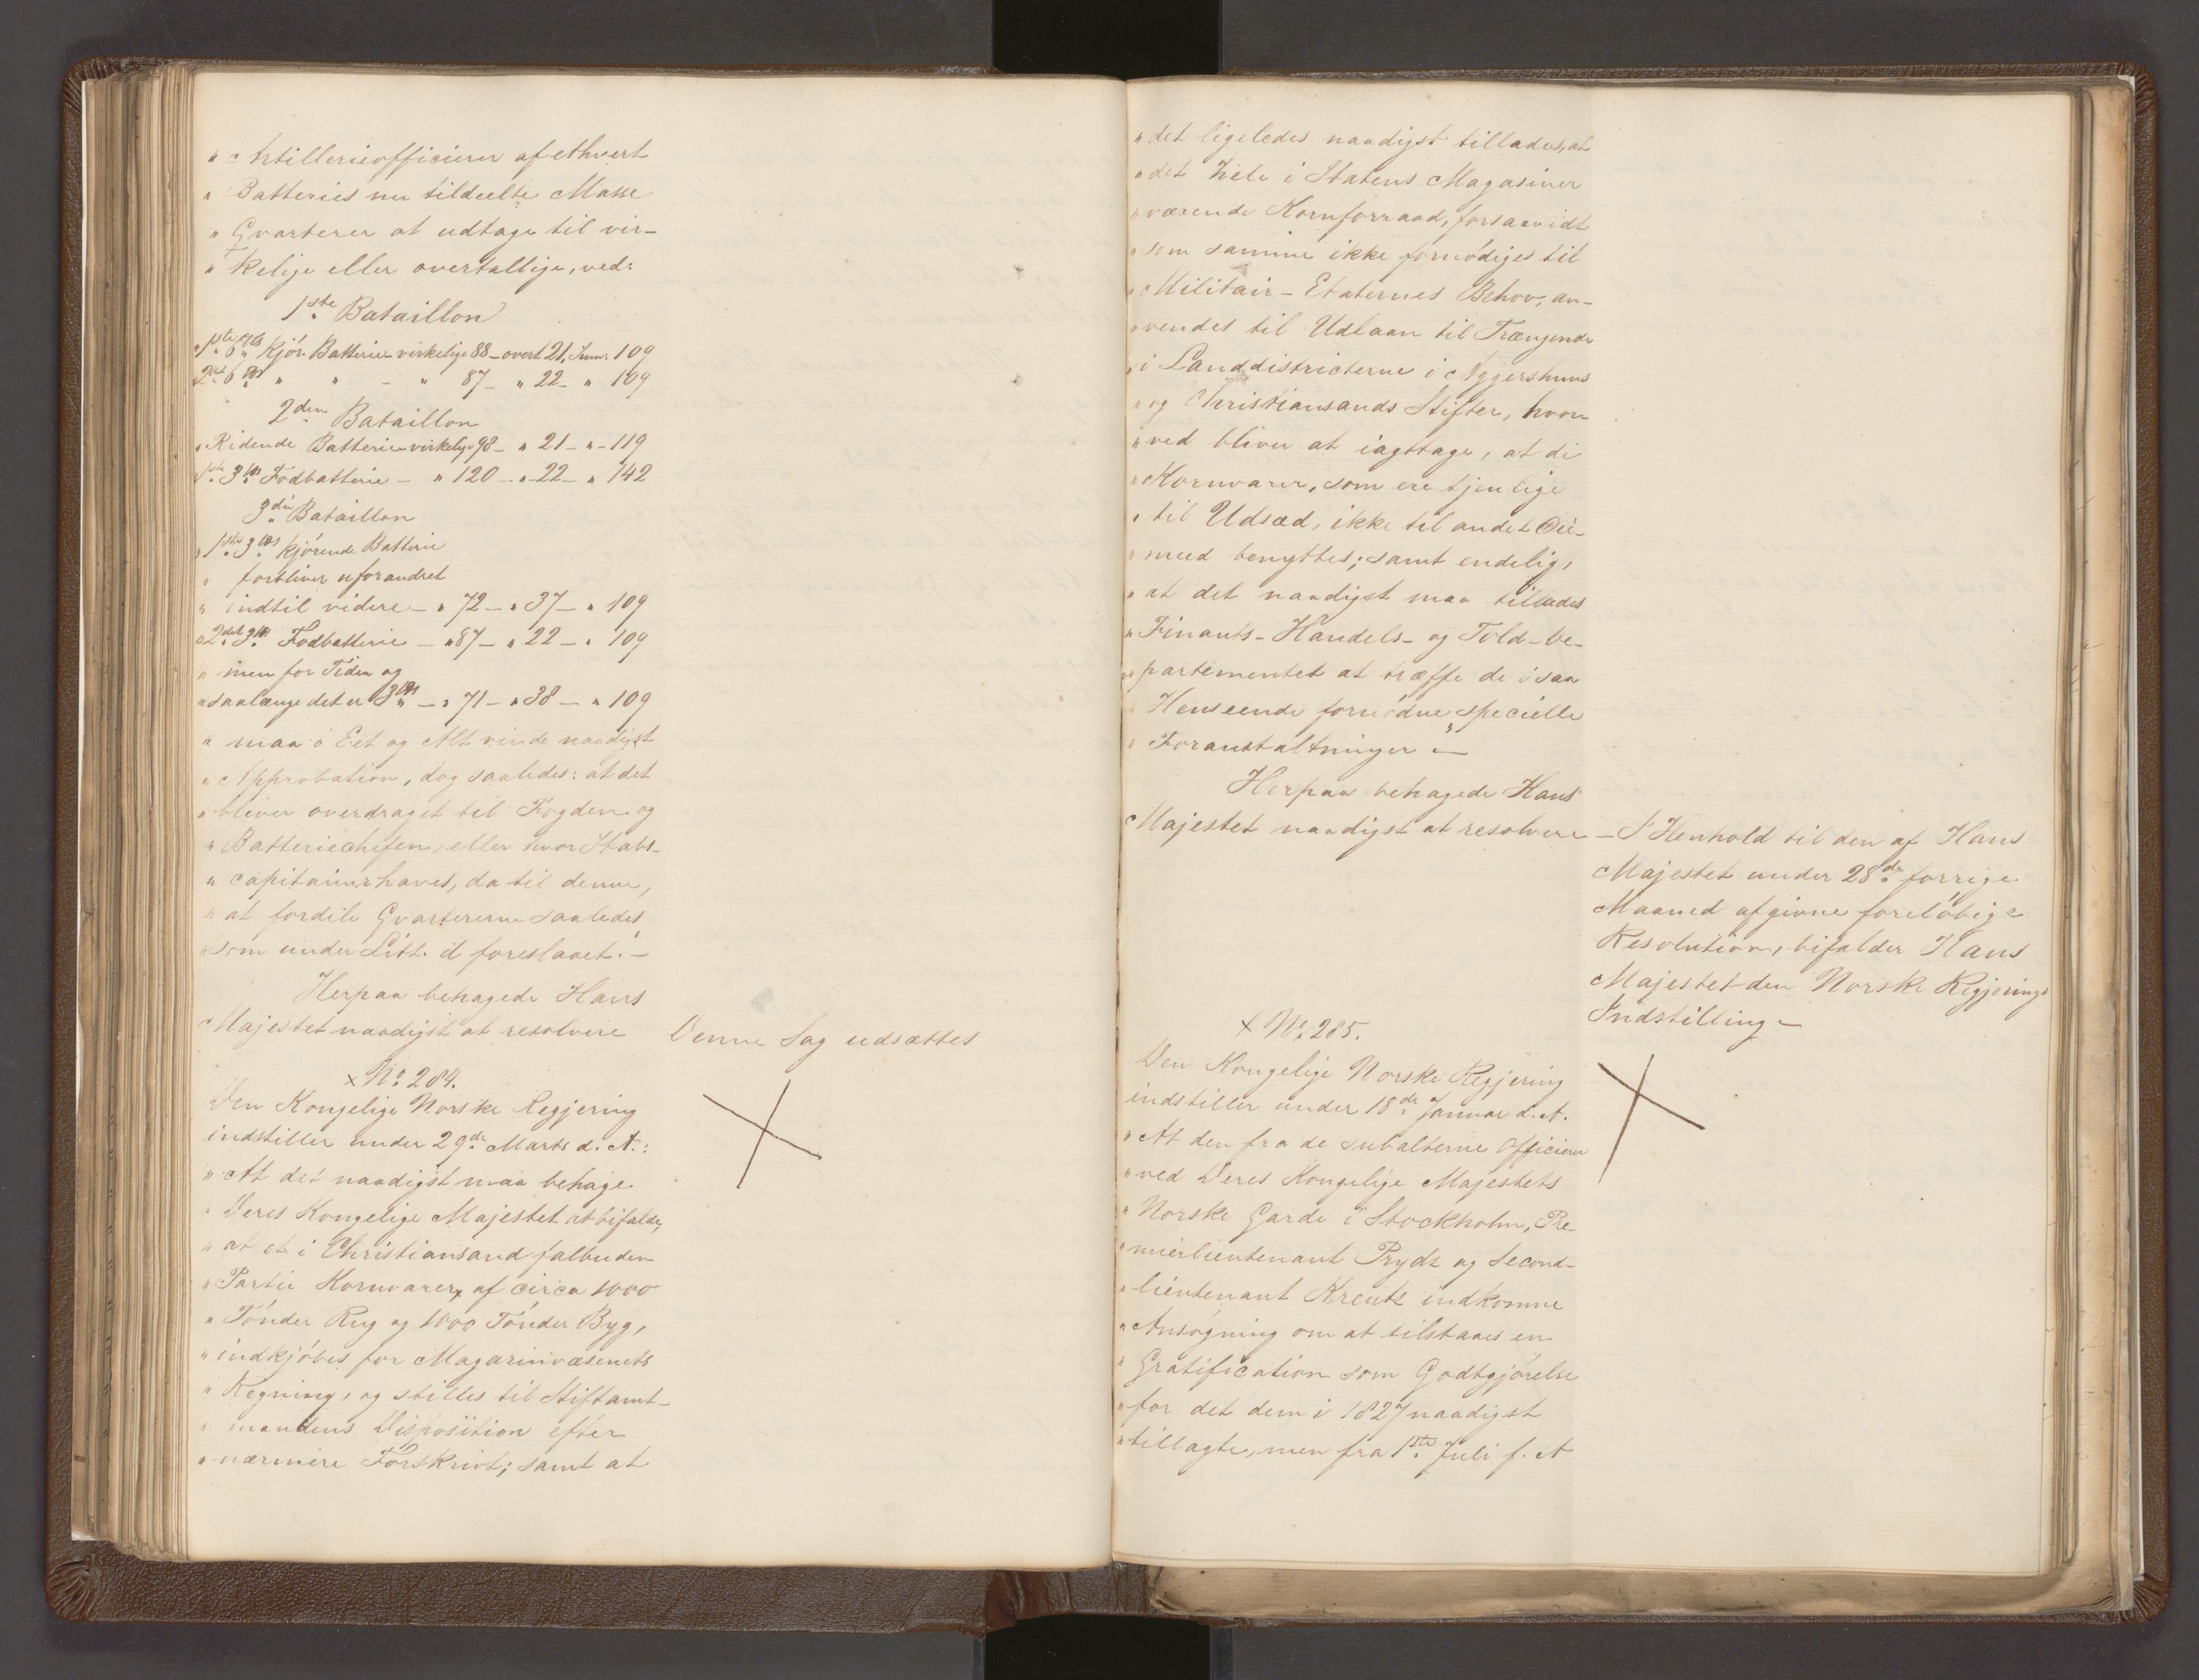 " Artillerieofficierer af ethvert
" Batteries nu tildeelte Masse
" Qvarterer at udtage til vir-
" kelige eller overtallige, ved:
1ste Bataillon
" 1ste 6 ℔s Kjör. Batterie virkelige 88 - overt 21, Sum. 109
2det 6 ℔s " " - " 87 - " 22 - " 109
2den Bataillon
" Ridende Batterie virkelige 98 - " 21 - " - 119
1ste 3 ℔s Fodbatterie - " 120 - " 22 - " 142
3die Bataillon
" 1ste 3 ℔s kjörende Batterie
" forbliver uforandret
" indtil videre - " 72 - " 37 - " 109
" 2det 3 ℔s Fodbatterie - " 87 - " 22 - " 109
" men for Tiden og
" saalænge det er 3 ℔s - " 71 - " 38 - " 109
" maa i Eet og Alt vinde naadigst
" Approbation, dog saaledes: at det
" bliver overdraget til Fogden og
" Batteriechefen, eller hvor Stabs-
" capitainer haves, da til denne,
" at fordele Qvartererne saaledes
" som under Litt. d foreslaaet. -
Herpaa behagede Hans
Majestet naadigst at resolvere
Denne Sag udsættes
x No 284.
Den Kongelige Norske Regjering
indstiller under 29de Marts d. A.:
" At det naadigst maa behage
" Deres Kongelige Majestet at bifalde,
" at et i Christiansand falbuden
" Partie Kornvarer, af circa 1000
" Tönder Rug og 1000 Tönder Byg,
" indkjöbes for Magazinvæsenets
" Regning, og stilles til Stiftamt-
" mandens Disposition efter
" nærmere Forskrivt; samt at
" det ligeledes naadigst tillades, at
" det hele i Statens Magasiner
" værende Kornforraad, forsaavidt
" som samme ikke fornödiges til
" Militair-Etaternes Behov, an-
" vendes til Udlaan til Trængende
" i Landdistricterne i Aggershuus
" og Christiansands Stifter, hvor-
" ved bliver at iagttage, at de
" Kornvarer, som ere tjenlige
" til Udsæd, ikke til andet Öie-
" meed benyttes; samt endelig,
" at det naadigst maa tillades
" Finants- Handels- og Told-De-
" partementet at træffe de i saa
" Henseende fornödne specielle
" Foranstaltninger "-
Herpaa behagede Hans
Majestet naadigst at resolvere -
I Henhold til den af Hans
Majestet under 28de forrige
Maaned afgivne foreløbige
Resolution, bifalder Hans
Majestet den Norske Regjerings
Indstilling -
x No 285.
Den Kongelige Norske Regjering
indstiller under 18de Januar d. A.
" At den fra de subalterne Officierer
" ved Deres Kongelige Majestets
" Norske Garde i Stockholm, Pre-
" mierlieutenant Prydz og Second-
" lieutenant Kreutz indkomne
" Ansögning om at tilstaaes en
" Gratification som Godtgjörelse
" for det dem i 1827 naadigst
" tillagte, men fra 1ste Juli f. A